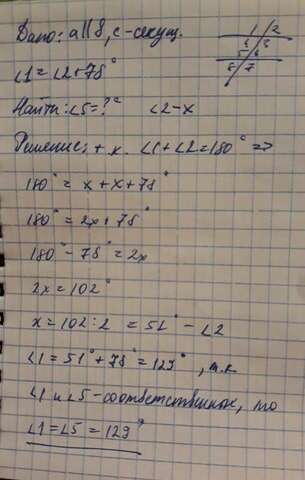 Дано: a||b, c-секущ.
1 2
4 3
5 6
8 7
∠1=∠2+78°
Найти: ∠5=? ∠2-x
Решение: т.к. ∠1+∠2=180° =>
180°=x+x+78°
180°=2x+78°
180°-78°=2x
2x=102°
x=102:2=51°-∠2
∠1=51°+78°=129°, т.к
∠1 и ∠5-соответственные, то
∠1=∠5=129°